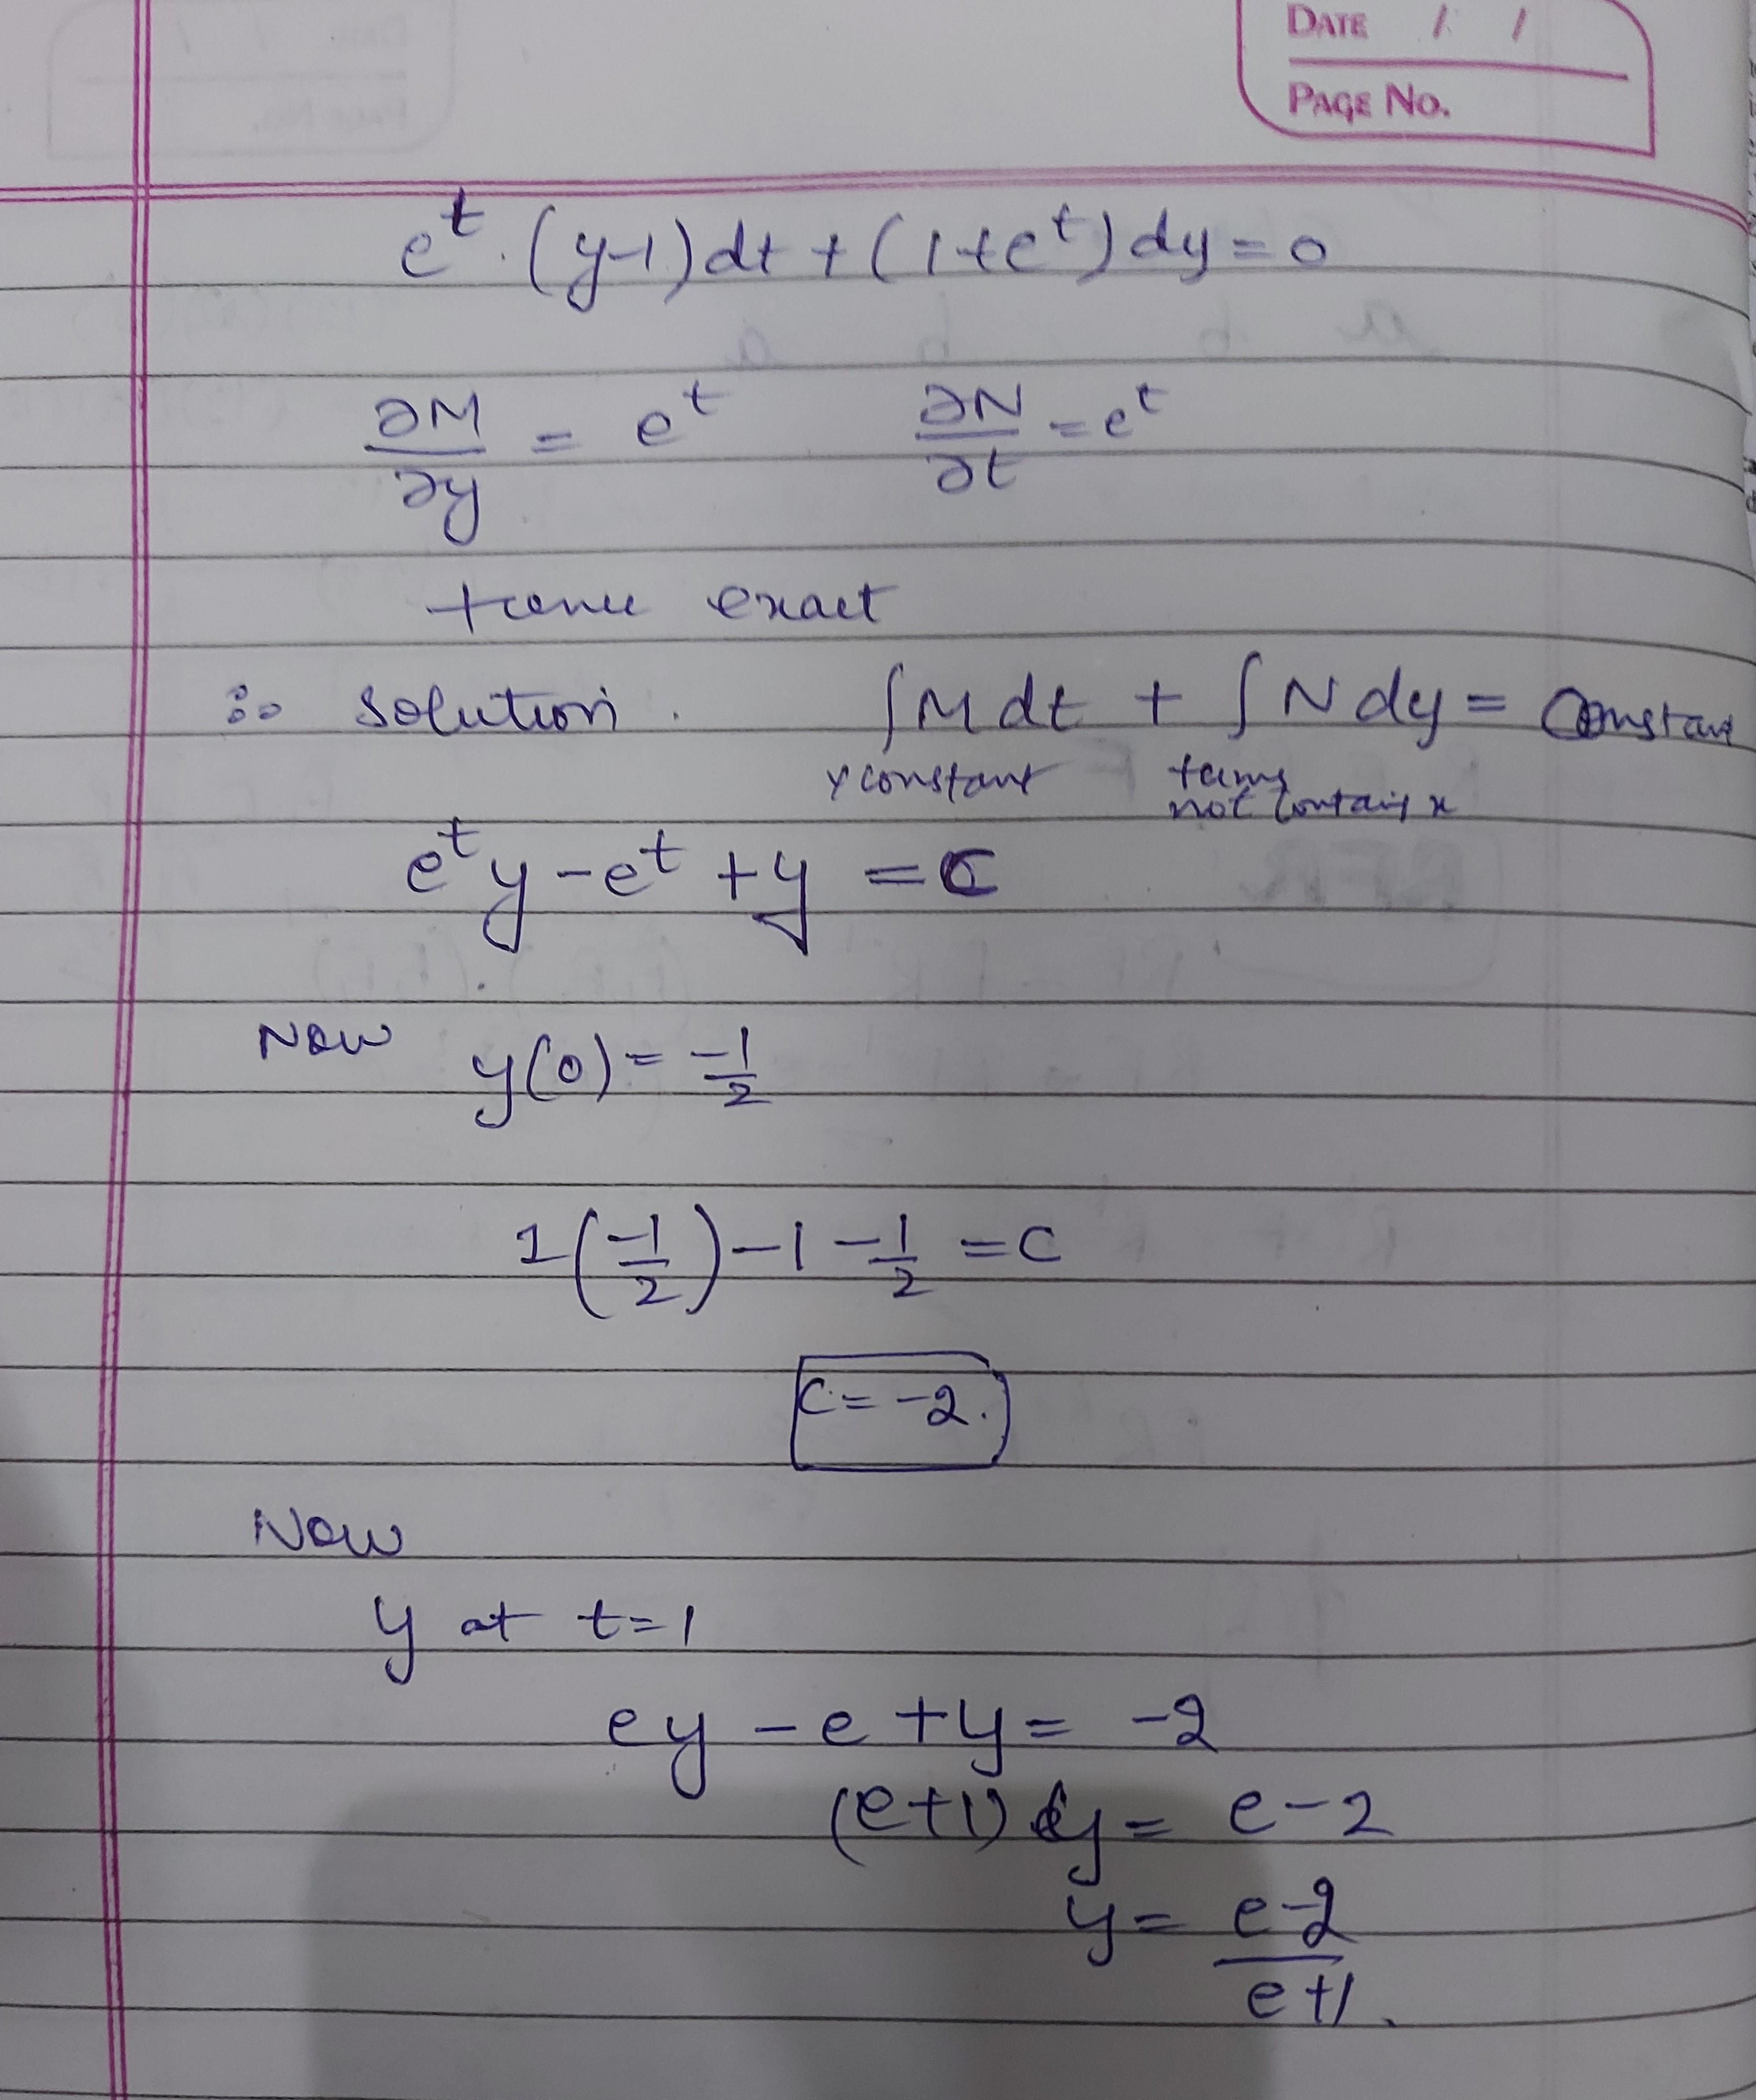 DATE / /
PAGE NO.
e^t · (y-1)dt + (1+e^t)dy = 0
∂M/∂y = e^t ∂N/∂t = e^t
exact
∴ solution. ∫M dt + ∫N dy = Constant
y constant terms
not contains x
e^t y - e^t + y = C
Now y(0) = -1/2
1(-1/2) - 1 - 1/2 = C
C = -2.
Now
y at t = 1
ey - e + y = -2
(e+1)y = e - 2
y = e-2/e+1.